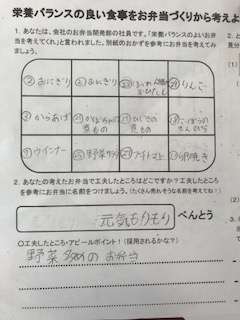 栄養バランスの良い食事をお弁当づくりから考えよ
1. あなたは、会社のお弁当開発部の社員です。「栄養バランスのよいお弁当を考えてくれ」と言われました。別紙のおかずを参考にお弁当を考えてみよう。
おにぎり
おにぎり
りんご
からあげ
かぼちゃの煮もの
ひじきの煮もの
ウインナー
野菜サラダ
プチトマト
卵焼き
2. あなたの考えたお弁当で工夫したところはどこですか？工夫したところを参考にお弁当に名前をつけましょう。（たくさん売れそうな名前を考えてね！）
元気もりもり べんとう
〇工夫したところ・アピールポイント！（採用されるかな？）
野菜多めのお弁当